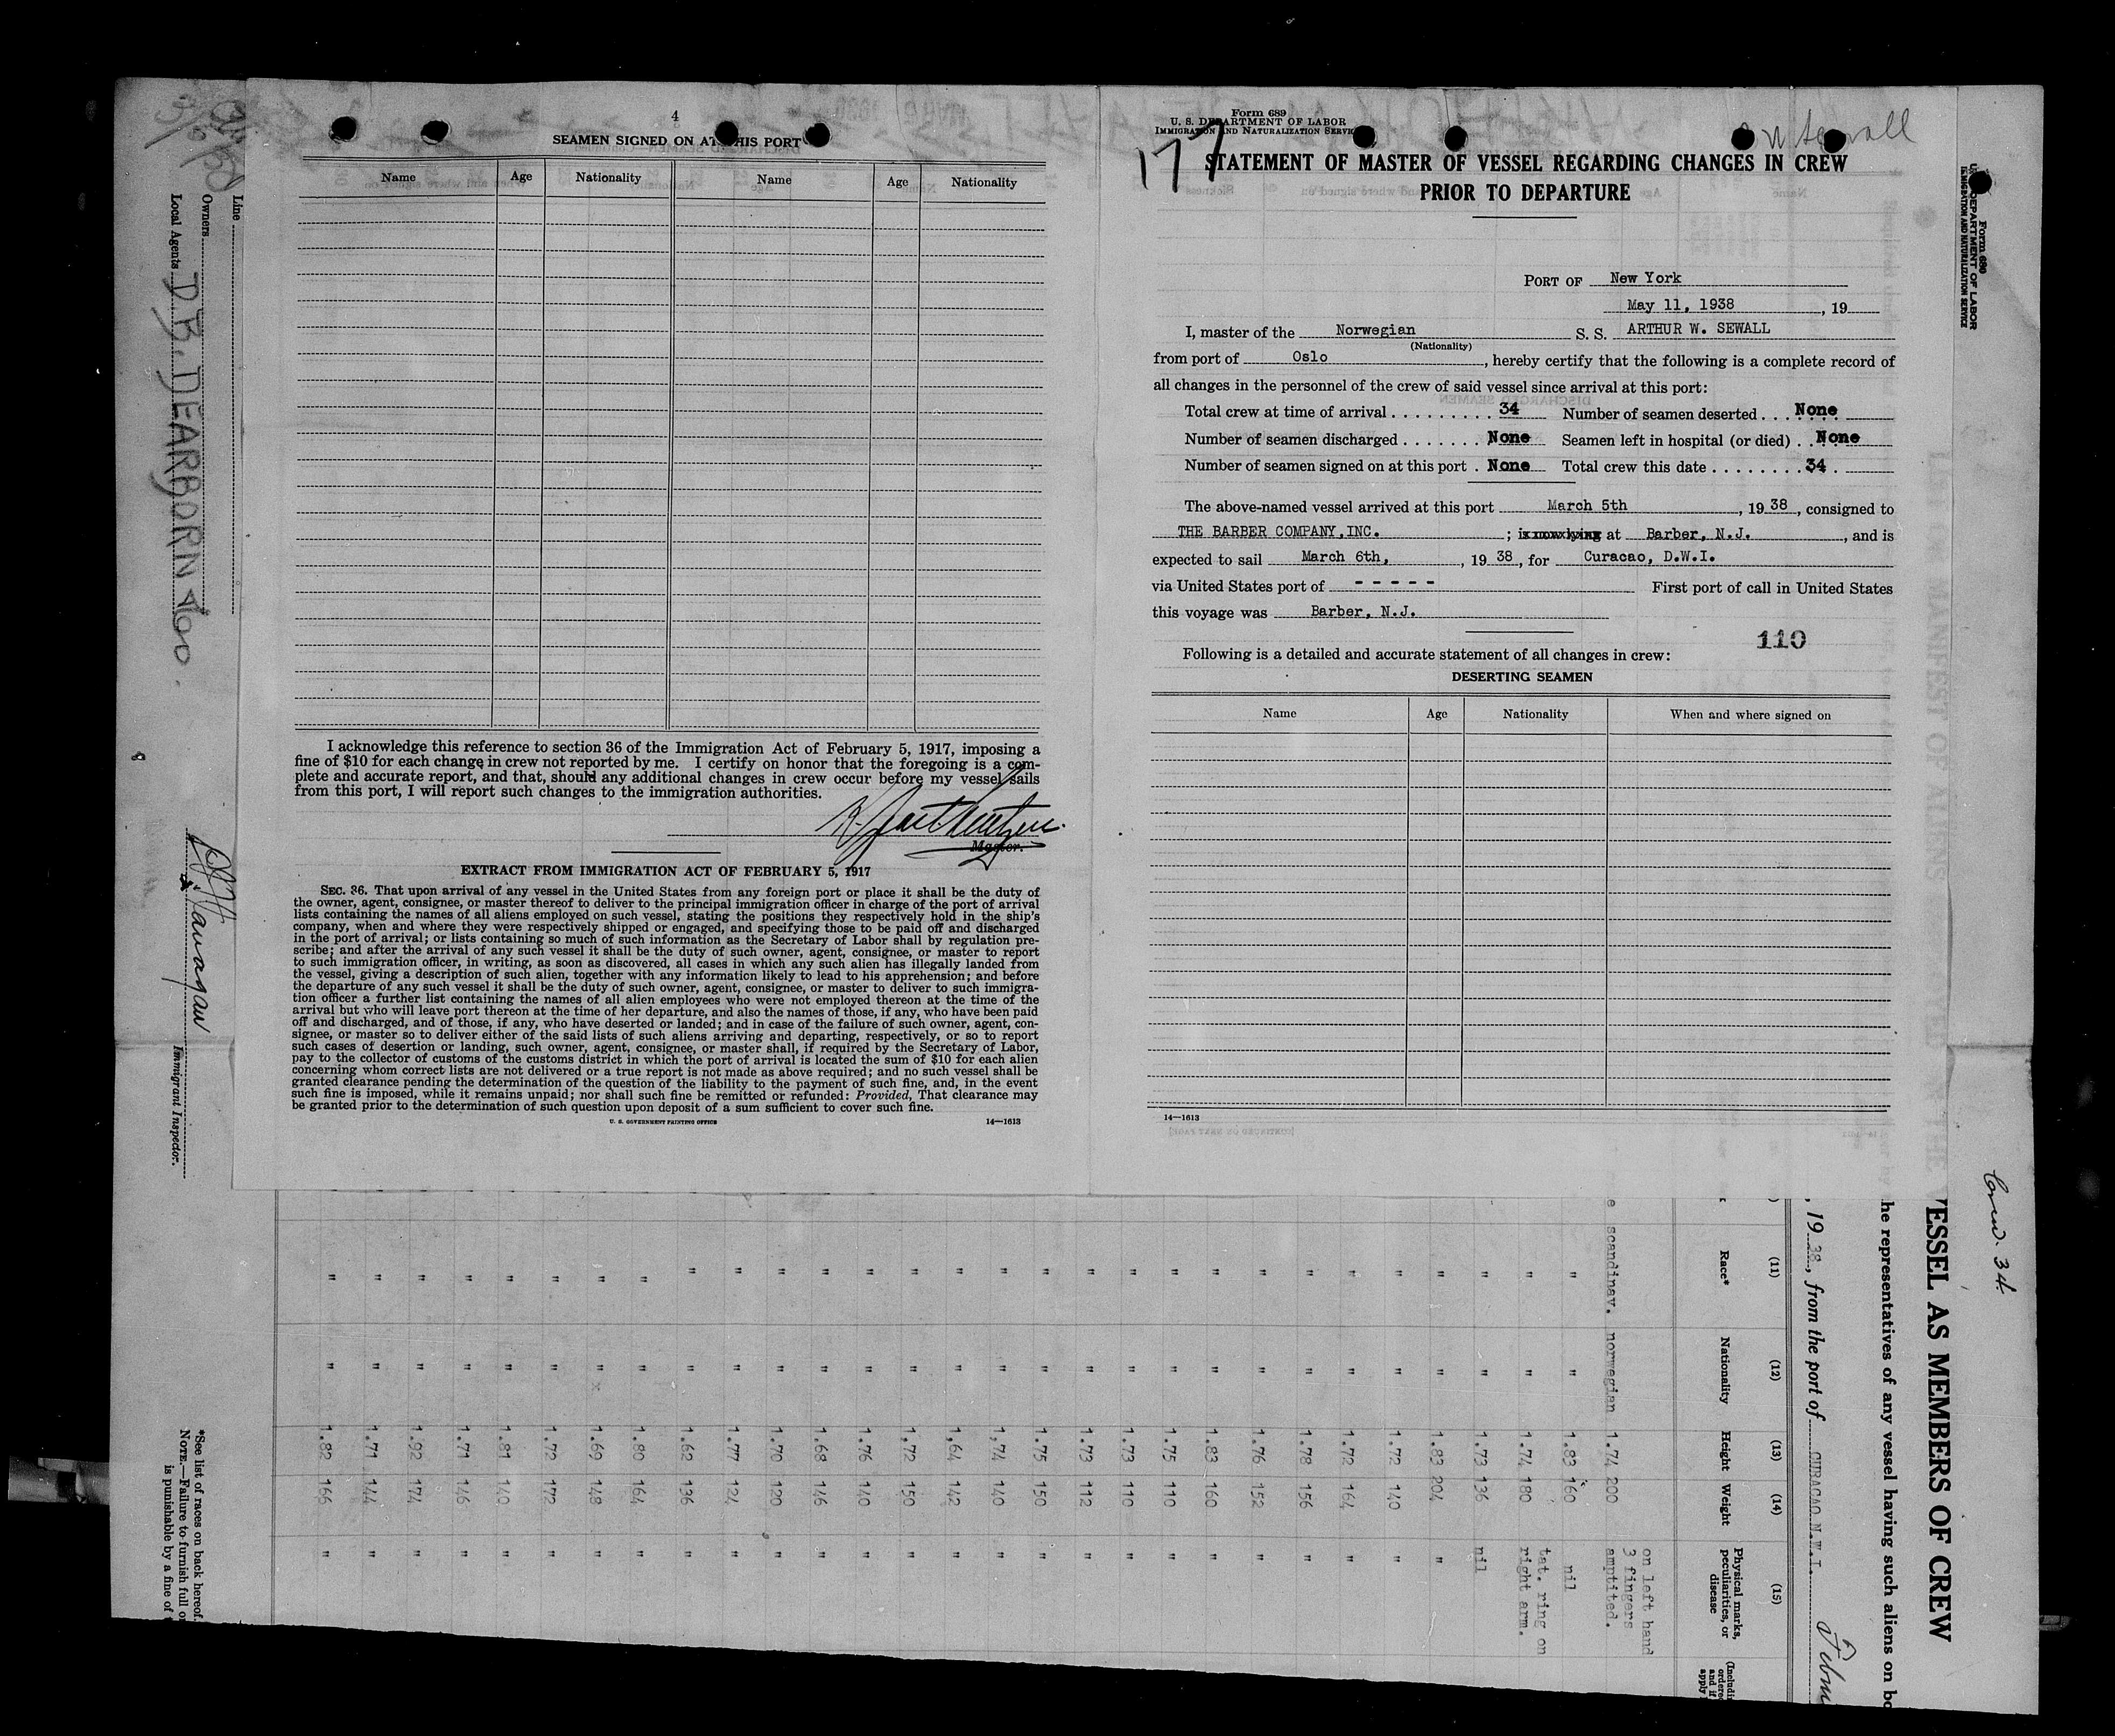 4
SEAMEN SIGNED ON AT THIS PORT
Name Age Nationality Name Age Nationality
I acknowledge this reference to section 36 of the Immigration Act of February 5, 1917, imposing a
fine of $10 for each change in crew not reported by me. I certify on honor that the foregoing is a com-
plete and accurate report, and that, should any additional changes in crew occur before my vessel sails
from this port, I will report such changes to the immigration authorities.
Master.
EXTRACT FROM IMMIGRATION ACT OF FEBRUARY 5, 1917
SEC. 36. That upon arrival of any vessel in the United States from any foreign port or place it shall be the duty of
the owner, agent, consignee, or master thereof to deliver to the principal immigration officer in charge of the port of arrival
lists containing the names of all aliens employed on such vessel, stating the positions they respectively hold in the ship's
company, when and where they were respectively shipped or engaged, and specifying those to be paid off and discharged
in the port of arrival; or lists containing so much of such information as the Secretary of Labor shall by regulation pre-
scribe; and after the arrival of any such vessel it shall be the duty of such owner, agent, consignee, or master to report
to such immigration officer, in writing, as soon as discovered, all cases in which any such alien has illegally landed from
the vessel, giving a description of such alien, together with any information likely to lead to his apprehension; and before
the departure of any such vessel it shall be the duty of such owner, agent, consignee, or master to deliver to such immigra-
tion officer a further list containing the names of all alien employees who were not employed thereon at the time of the
arrival but who will leave port thereon at the time of her departure, and also the names of those, if any, who have been paid
off and discharged, and of those, if any, who have deserted or landed; and in case of the failure of such owner, agent, con-
signee, or master so to deliver either of the said lists of such aliens arriving and departing, respectively, or so to report
such cases of desertion or landing, such owner, agent, consignee, or master shall, if required by the Secretary of Labor,
pay to the collector of customs of the customs district in which the port of arrival is located the sum of $10 for each alien
concerning whom correct lists are not delivered or a true report is not made as above required; and no such vessel shall be
granted clearance pending the determination of the question of the liability to the payment of such fine, and, in the event
such fine is imposed, while it remains unpaid; nor shall such fine be remitted or refunded: Provided, That clearance may
be granted prior to the determination of such question upon deposit of a sum sufficient to cover such fine.
U. S. GOVERNMENT PRINTING OFFICE 14—1613
Form 689
U. S. DEPARTMENT OF LABOR
IMMIGRATION AND NATURALIZATION SERVICE
177
Sewall
STATEMENT OF MASTER OF VESSEL REGARDING CHANGES IN CREW
PRIOR TO DEPARTURE
PORT OF New York
May 11, 1938, 19
I, master of the Norwegian S. S. ARTHUR W. SEWALL
(Nationality)
from port of Oslo, hereby certify that the following is a complete record of
all changes in the personnel of the crew of said vessel since arrival at this port:
Total crew at time of arrival 34 Number of seamen deserted None
Number of seamen discharged None Seamen left in hospital (or died) None
Number of seamen signed on at this port None Total crew this date 34
The above-named vessel arrived at this port March 5th, 1938, consigned to
THE BARBER COMPANY, INC.; is now lying at Barber, N.J., and is
expected to sail March 6th, 1938, for Curacao, D.W.I.
via United States port of - - - - - First port of call in United States
this voyage was Barber, N.J.
110
Following is a detailed and accurate statement of all changes in crew:
DESERTING SEAMEN
Name Age Nationality When and where signed on
14—1613
Line
Owners
Local Agents D. B. DEARBORN
Immigrant Inspector.
*See list of races on back hereof.
NOTE.—Failure to furnish full o
is punishable by a fine of
Form 689
U. S. DEPARTMENT OF LABOR
IMMIGRATION AND NATURALIZATION SERVICE
Crew 34
ESSEL AS MEMBERS OF CREW
he representatives of any vessel having such aliens on bo
, 1938, from the port of CURACAO N.W.I.
(11) (12) (13) (14) (15)
Race* Nationality Height Weight Physical marks, peculiarities, or disease
scandinav. norwegian 1.74 200 on left hand 3 fingers amptited.
" " 1.83 160 nil
" " 1.74 180 tat. ring on right arm.
" " 1.73 136 nil
" " 1.83 204 "
" " 1.72 140 "
" " 1.72 164 "
" " 1.78 156 "
" " 1.76 152 "
" " 1.83 160 "
" " 1.75 110 "
" " 1.73 110 "
" " 1.73 112 "
" " 1.75 150 "
" " 1,74 140 "
" " 1,64 142 "
" " 1,72 150 "
" " 1.76 140 "
" " 1,68 146 "
" " 1.70 120 "
" " 1.77 124 "
" " 1.62 136 "
" " 1.80 164 "
" " 1.69 148 "
" " 1.72 172 "
" " 1.81 140 "
" " 1.71 146 "
" " 1.92 174 "
" " 1.71 144 "
" " 1.82 166 "